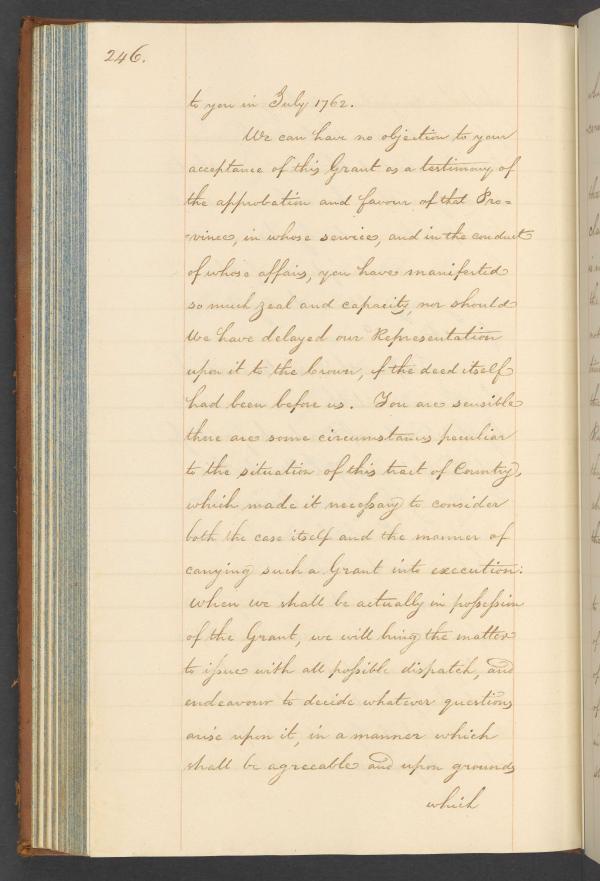 246.
to you in July 1762.
We can have no objection to your
acceptance of this Grant as a testimony of
the approbation and favour of that Pro=
vince, in whose service, and in the conduct
of whose affairs, you have manifested
so much zeal and capacity, nor should
We have delayed our Representation
upon it to the Crown, if the deed itself
had been before us. You are sensible
there are some circumstances peculiar
to the situation of this tract of Country,
which made it necessary to consider
both the case itself and the manner of
carrying such a Grant into execution:
When we shall be actually in possession
of the Grant, we will bring the matter
to issue with all possible dispatch, and
endeavour to decide whatever questions
arise upon it, in a manner which
shall be agreeable and upon grounds
which